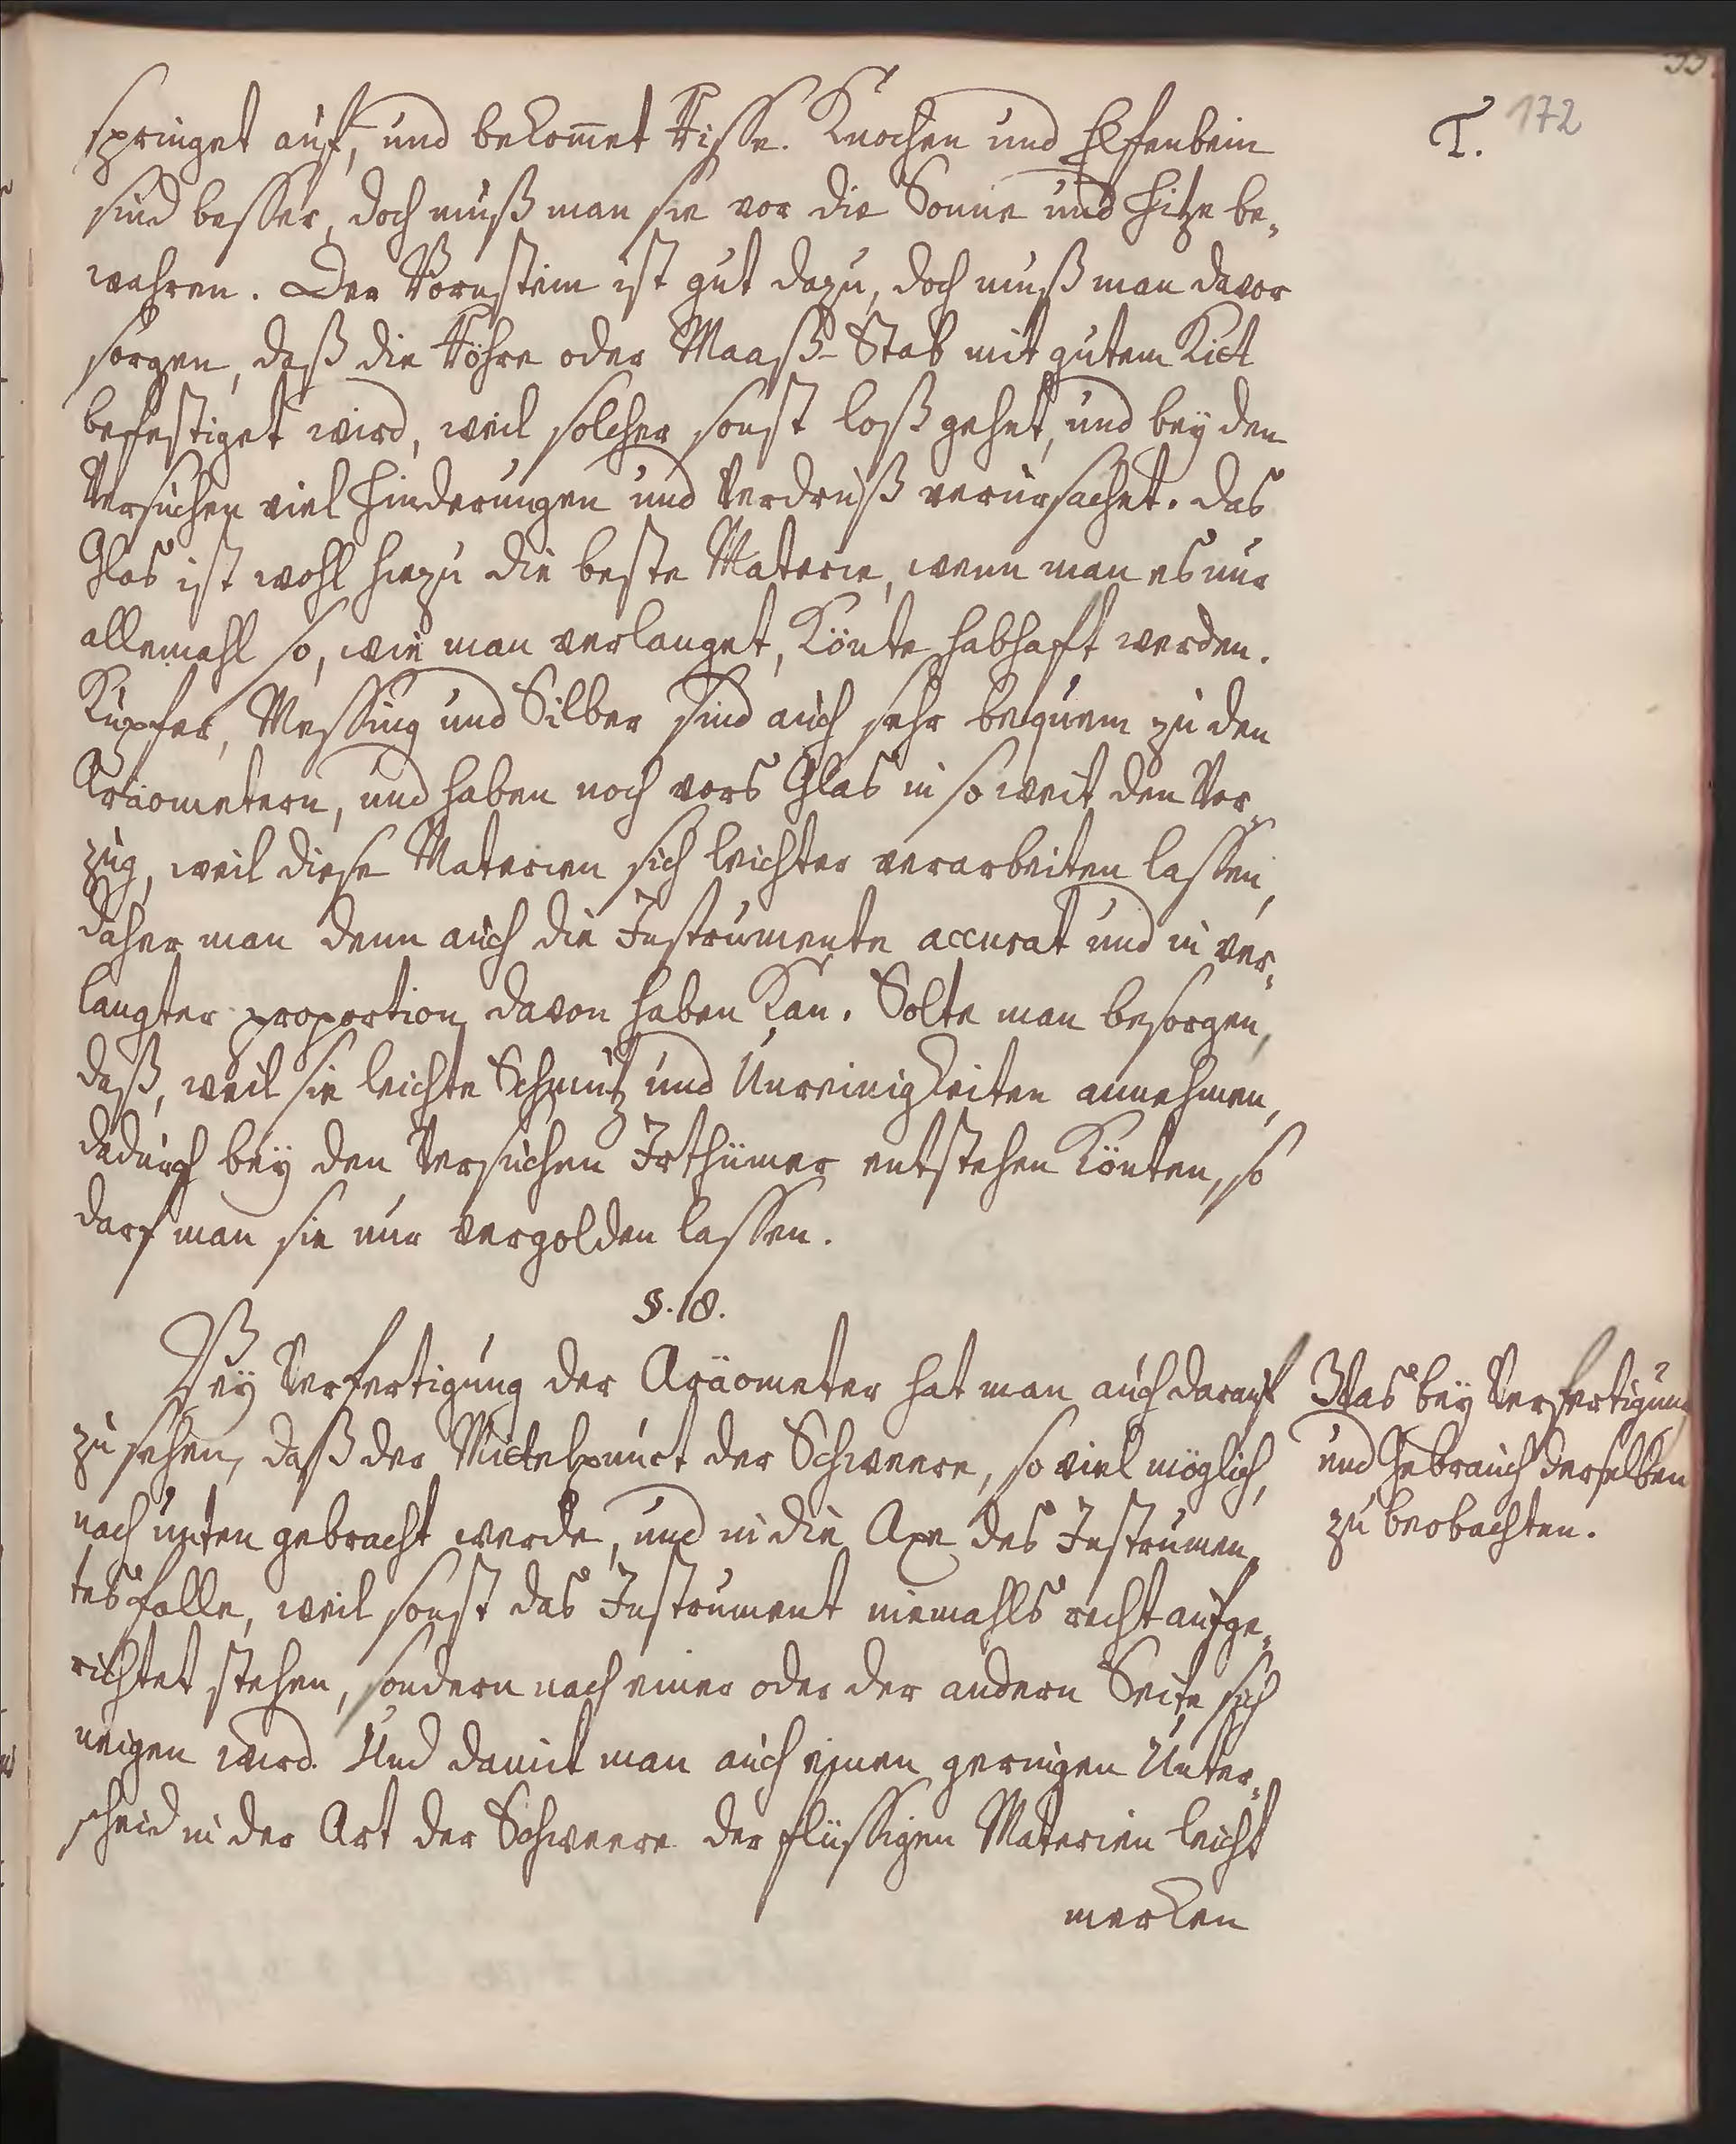 T. 172
springet auf, und bekom̅et Risse. Knochen und Elfenbein
sind besser, doch muß man sie vor die Sonne und Hitze be-
wahren. Der Börnstein ist gut dazu, doch muß man davor
sorgen, daß die Röhre oder Maaß-Stab mit gutem Kict
befestiget wird, weil solcher sonst loß gehet, und bey den
Versuchen viel Hinderungen und Verdruß verursachet. Das
Glas ist wohl hiezu die beste Materie, wenn man es nur
allemahl so, wie man verlanget, könte habhafft werden.
Kupfer, Messing und Silber sind auch sehr bequem zu den
Aräometern, und haben noch vors Glas in so weit den Vor-
zug, weil diese Materien sich leichter verarbeiten lassen,
daher man denn auch die Instrumente accurat und in ver-
langter proportion davon haben kan. Solte man besorgen,
daß, weil sie leichte Schmutz und Unreinigkeiten annehmen,
dadurch bey den Versuchen Irthümer entstehen könten, so
darf man sie nur vergolden lassen.
§. 18.
Bey Verfertigung der Aräometer hat man auch darauf
zu sehen, daß der Mictelpunct der Schweere, so viel möglich,
nach unten gebracht werde, und in die Axe des Instrumen-
tes falle, weil sonst das Instrument niemahls recht aufge-
richtet stehen, sondern nach einer oder der andern Seite sich
neigen wird. Und damit man auch einen geringen Unter-
scheid in der Art der Schweere der flüssigen Materien leicht
merken
Was bey Verfertigung
und Gebrauch derselben
zu beobachten.